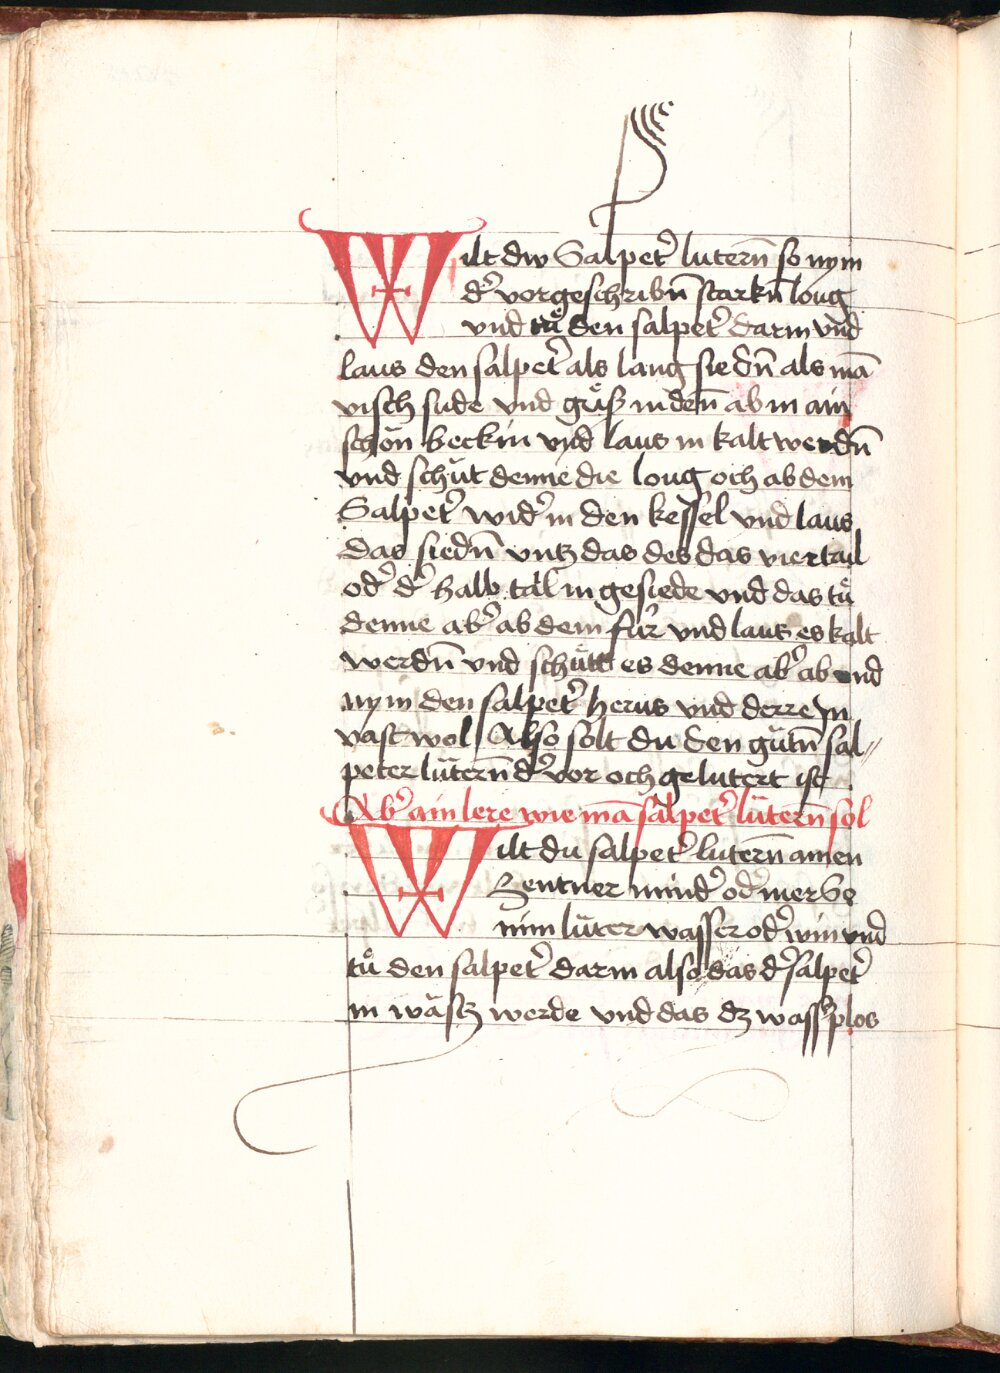 Wilt dw Salpet͛ lutern̄ so nym
d͛ vorgeschribn̄ starkn̄ loug
vnd tů den salpet͛ darin vnd
laus den salpet͛ als lang siedn̄ als mā
visch sude vnd gǔß in den̄ ab in ain
schön beckin vnd laus in kalt werdn̄
vnd schüt denne die loug och ab dem
Salpet͛ wid͛ in den kessel vnd laus
das siedn̄ vntz das des das viertail
od͛ d͛ halb tail in gesiede vnd das tů
denne ab͛ ab dem für vnd laus es kalt
werdn̄ vnd schütt es denne ab͛ ab vnd
nym den salpet͛ herus vnd derre jn
vast wol Also solt du den gůtn̄ sal〃
peter lütern̄ d͛ vor och gelutert ist
Ab͛ ain lere wie mā salpet͛ lütern̄ sol
Wilt du salpet͛ lutern̄ ainen
Zentner mind͛ od͛ mer So
nim lüter wasser od͛ win vnd
tů den salpet͛ darin also das d͛ salpet͛
in wäsch werde vnd das dz wass͛ plos